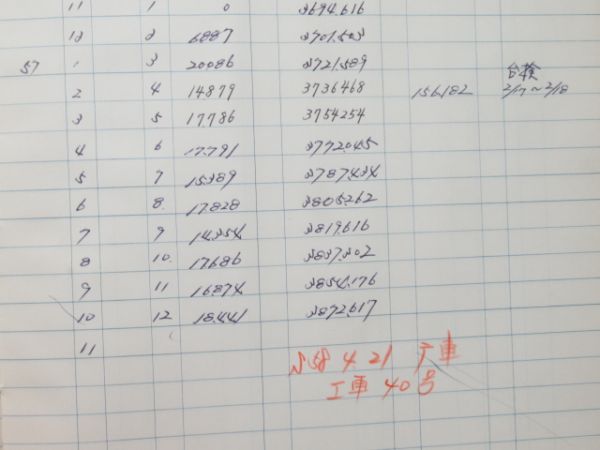 11 1 0 3694.616
12 2 6887 3701.503
台検
57 1 3 20086 3721.589
2 4 14879 3736468 156182 2/17~2/18
3 5 17786 3754254
4 6 17.791 3772.045
5 7 15389 3787.434
6 8. 17828 3805.262
7 9 14.354 3819.616
8 10. 17686 3837.302
9 11 16.874 3854.176
10 12 18.441 3872.617
11
S58 4 21 广車
工車 40号